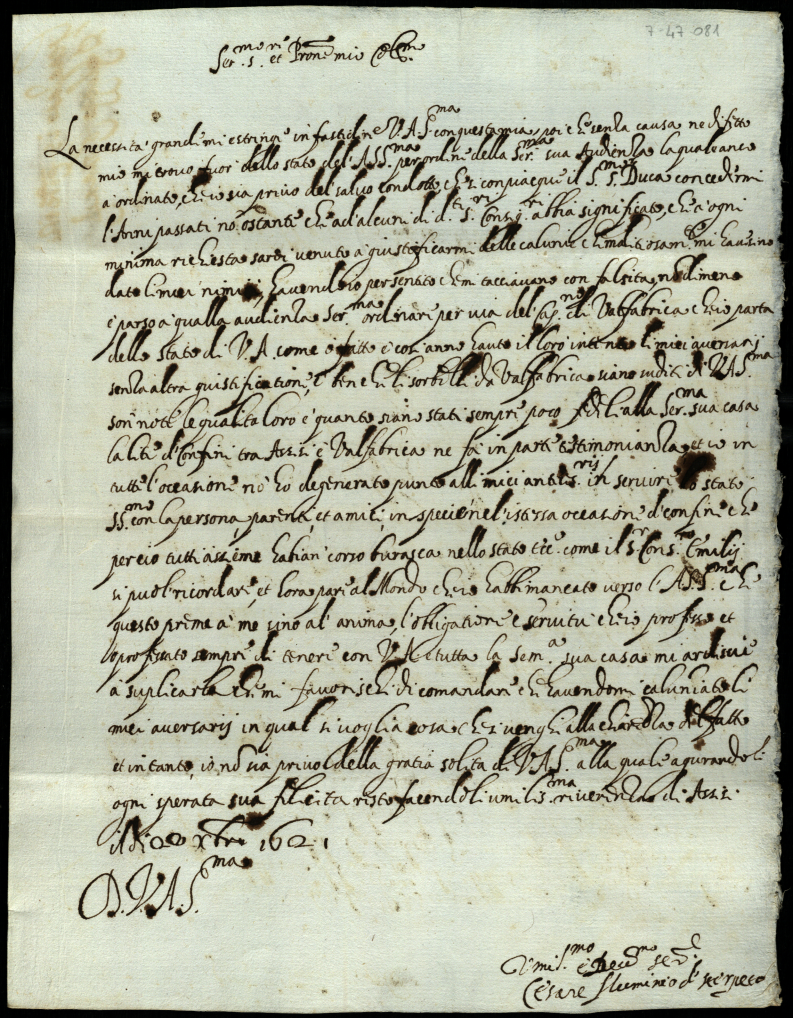 7-47-081
Ser.mo S.re et Prone mio Colmo
La necessità grande mi estringe infastidire V.A.S.ma con questa mia, poi che senza causa ne difetto
mio mi trovo fuor dello stato del A.SS.ma per ordine della Ser.ma sua Audienza la quale anco
à ordinato, che io sia privo del salvo condotto, che si compiacque il S.S. Duca concedermi
l'Anni passati no ostante che ad alcuni di d.ti S.ri Consig.ri abbia significato, che à ogni
minima richiesta sarei venuto à giustificarmi delle calunie che malitiosam.te mi havesino
dato li miei nimici, havendo io persentito che mi tacciavano con falsità, nodimeno
è parso a qualla audienza Ser.ma ordinare per via del Cap.no di Valfabrica che io parta
dello Stato di V.A. come ò fatto e così anno hauto il loro intento li miei aversarij
senza altra giustificatione, e ben che li sorbelli da Valfabrica siano suditi di V.A.S.ma
son note le qualità loro e quanto siano stati sempre poco fedeli alla Ser.ma sua casa
la lite d'Confini tra Assisi e Valfabrica ne fa in parte testimonianza, et io in
tutte l'occasione no ho degenerato punto alli miei antis.rij in servire lo stato
SS.mo con la persona, parenti, et amici, in specie nel'istessa occasione d'confine che
per cio tutti assieme habian corso burasca nello stato Ec.c. come il S.r Cons.ro Emilij
si può ricordare, et hora pare al Mondo che io habbi mancato verso l'A.S.S.ma che
questo preme à me sino al anima l'obbligatione e servitù che io professo et
ò professato sempre di tenere con V.A. e tutta la Sem.a sua casa mi ardisce
à suplicarla che mi favorischi di comandare che havendomi caluniato li
miei aversarij in qual si voglia cosa che si venghi alla chiarezza del fatto
et in tanto, io no sia privo della gratia solita di V.A.S.ma alla quale agurandoli
ogni sperata sua felicità resto facendoli umilis.ma riverenza di Assisi
il di 20 Xbre 1621
D.V.A.S.ma
Umil.mo e Devo.mo ser.e
Cesare